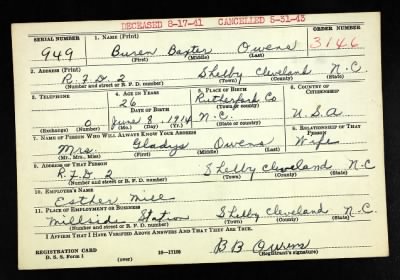 DECEASED 8-17-41 CANCELLED 5-31-43
SERIAL NUMBER 1. NAME (Print) ORDER NUMBER
949 Buren Baxter Owens 3146
(First) (Middle) (Last)
2. ADDRESS (Print)
R.F.D 2 Shelby Cleveland N.C.
(Number and street or R. F. D. number) (Town) (County) (State)
3. TELEPHONE 4. AGE IN YEARS 5. PLACE OF BIRTH 6. COUNTRY OF CITIZENSHIP
26 Rutherford Co
DATE OF BIRTH (Town or county)
0 June 8 1914 N.C. U.S.A
(Exchange) (Number) (Mo.) (Day) (Yr.) (State or country)
7. NAME OF PERSON WHO WILL ALWAYS KNOW YOUR ADDRESS 8. RELATIONSHIP OF THAT PERSON
Mrs Gladys Owens Wife
(Mr., Mrs., Miss) (First) (Middle) (Last)
9. ADDRESS OF THAT PERSON
R.F.D 2 Shelby Cleveland N.C
(Number and street or R. F. D. number) (Town) (County) (State)
10. EMPLOYER'S NAME
Esther Mill
11. PLACE OF EMPLOYMENT OR BUSINESS
Millside Station Shelby Cleveland N.C.
(Number and street or R. F. D. number) (Town) (County) (State)
I AFFIRM THAT I HAVE VERIFIED ABOVE ANSWERS AND THAT THEY ARE TRUE.
B B Owens
REGISTRATION CARD
D. S. S. Form 1 (over) 16—17105 (Registrant's signature)